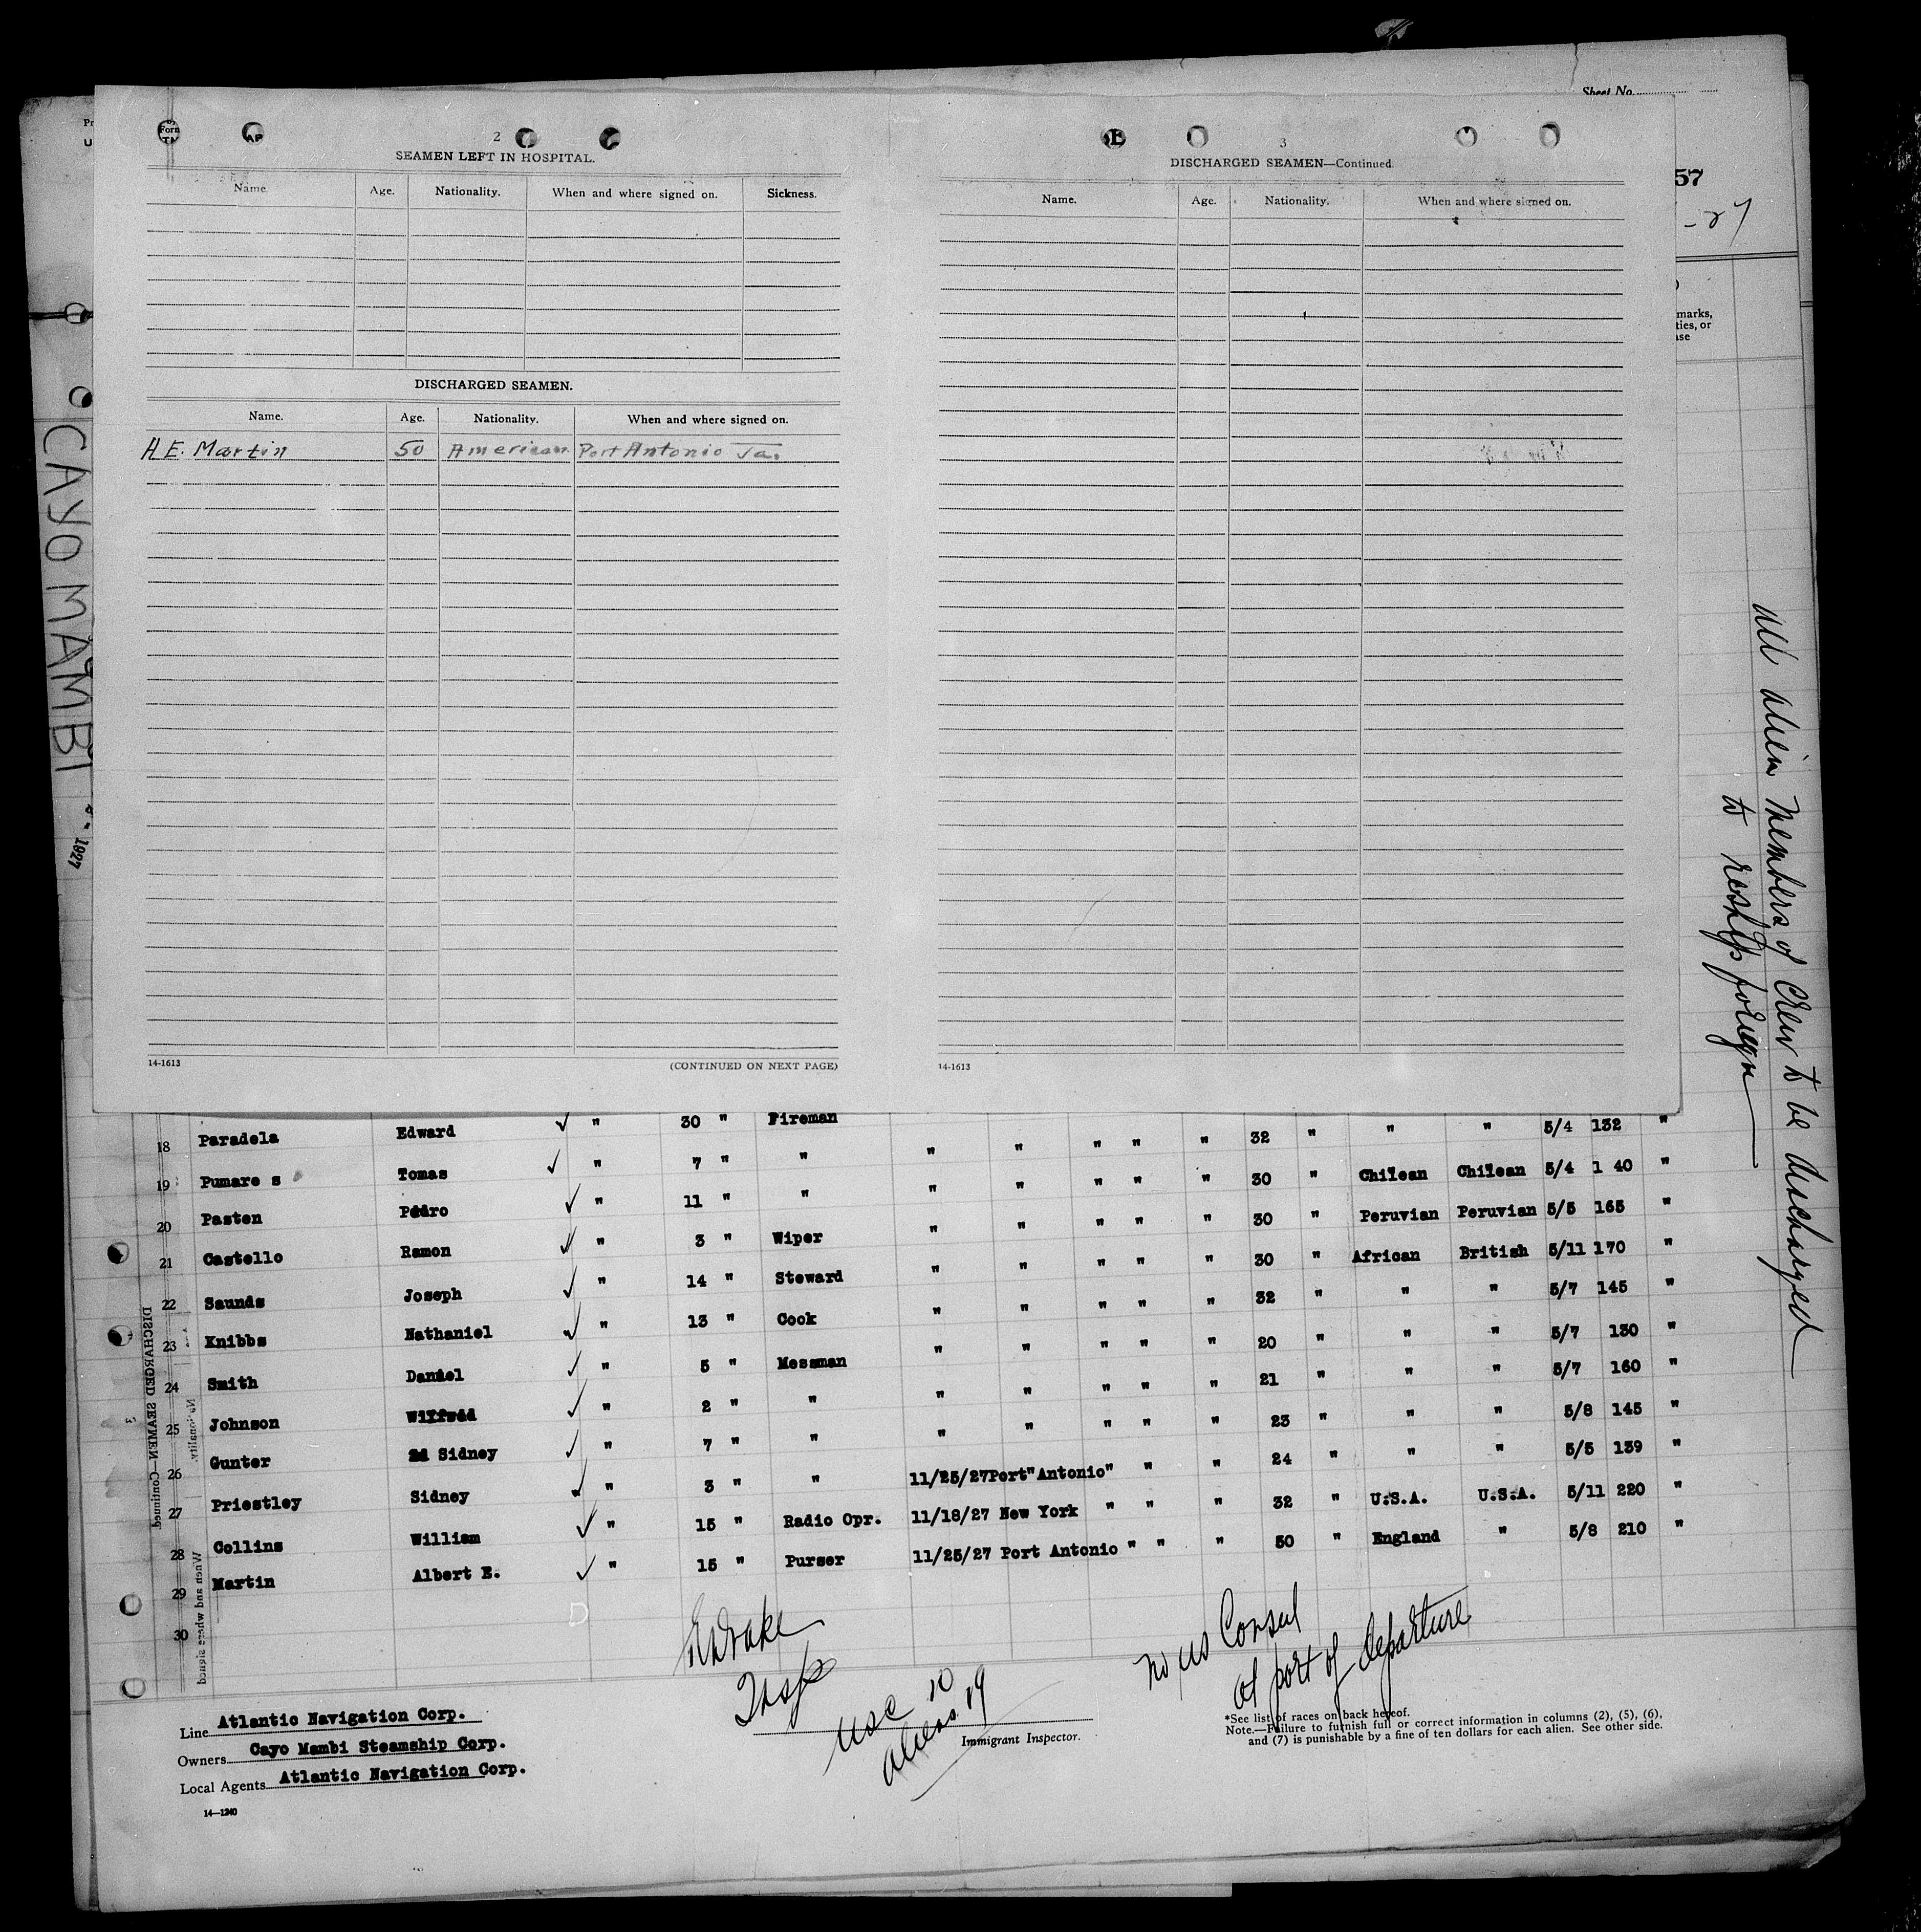 Sheet No.
2
SEAMEN LEFT IN HOSPITAL.
Name. Age. Nationality. When and where signed on. Sickness.
DISCHARGED SEAMEN.
Name. Age. Nationality. When and where signed on.
A E. Martin 50 American Port Antonio Ja.
14-1613 (CONTINUED ON NEXT PAGE)
3
DISCHARGED SEAMEN—Continued.
Name. Age. Nationality. When and where signed on.
14-1613
57
-27
marks,
ties, or
ase
CAYO MAMBI
1927
All Alien Members of Crew to be discharged
to reship foreign
18 Paradela Edward ✓ " 30 " Fireman " " " " " 32 " " " 5/4 132 "
19 Pumare s Tomas ✓ " 7 " " " " " " " 30 " Chilean Chilean 5/4 1 40 "
20 Pasten Pedro ✓ " 11 " " " " " " " 30 " Peruvian Peruvian 5/5 165 "
21 Castello Ramon ✓ " 3 " Wiper " " " " " 30 " African British 5/11 170 "
22 Saunds Joseph ✓ " 14 " Steward " " " " " 32 " " " 5/7 145 "
23 Knibbs Nathaniel ✓ " 13 " Cook " " " " " 20 " " " 5/7 130 "
24 Smith Daniel ✓ " 5 " Messman " " " " " 21 " " " 5/7 160 "
25 Johnson ✓ " 2 " " " " " " " 23 " " " 5/8 145 "
26 Gunter Sidney ✓ " 7 " " " " " " " 24 " " " 5/5 139 "
27 Priestley Sidney ✓ " 3 " " 11/25/27 Port "Antonio" " " 32 " U.S.A. U.S.A. 5/11 220 "
28 Collins William ✓ " 15 " Radio Opr. 11/18/27 New York " " " 50 " England " 5/8 210 "
29 Martin Albert E. ✓ " 15 " Purser 11/25/27 Port Antonio " " "
30
Drake
Insp
USC 10
aliens 19
No US Consul
at port of departure
Line Atlantic Navigation Corp.
Owners Cayo Mambi Steamship Corp.
Local Agents Atlantic Navigation Corp.
14—1240
Immigrant Inspector.
*See list of races on back hereof.
Note.—Failure to furnish full or correct information in columns (2), (5), (6),
and (7) is punishable by a fine of ten dollars for each alien. See other side.
DISCHARGED SEAMEN—Continued.
3
Nationality.
When and where signed